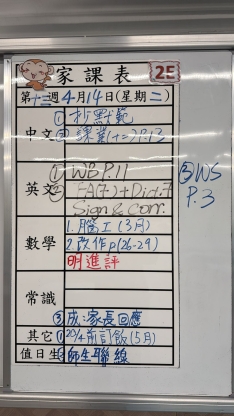 家課表 2E
第十三週4月14日(星期二)
中文 ①抄默範
②課業(十二)P.13
英文 ①WB P.11
②FA(7)+Dict.7
Sign & Corr.
③WS
P.3
數學 1.腦工(3月)
2.改作p(26-29)
明進評
常識
③成:家長回應
其它 ①20/4前訂飯(5月)
值日生 ②師生聯線